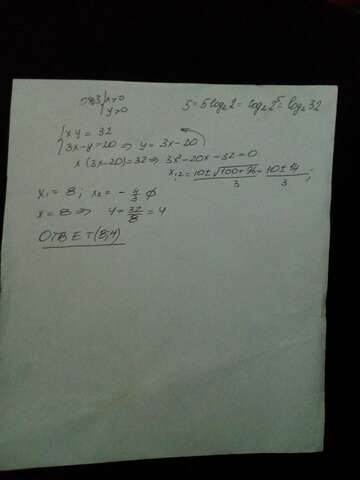 ОДЗ { x>0 y>0
5 = 5log₂2 = log₂2⁵ = log₂32
{ xy = 32
3x-y=20 ⇒ y = 3x-20
x(3x-20)=32 ⇒ 3x²-20x-32=0
x₁,₂ = (10±√(100+96))/3 = (10±14)/3 ;
x₁ = 8 ; x₂ = -4/3 ∅
x = 8 ⇒ y = 32/8 = 4
ОТВЕТ (8;4)